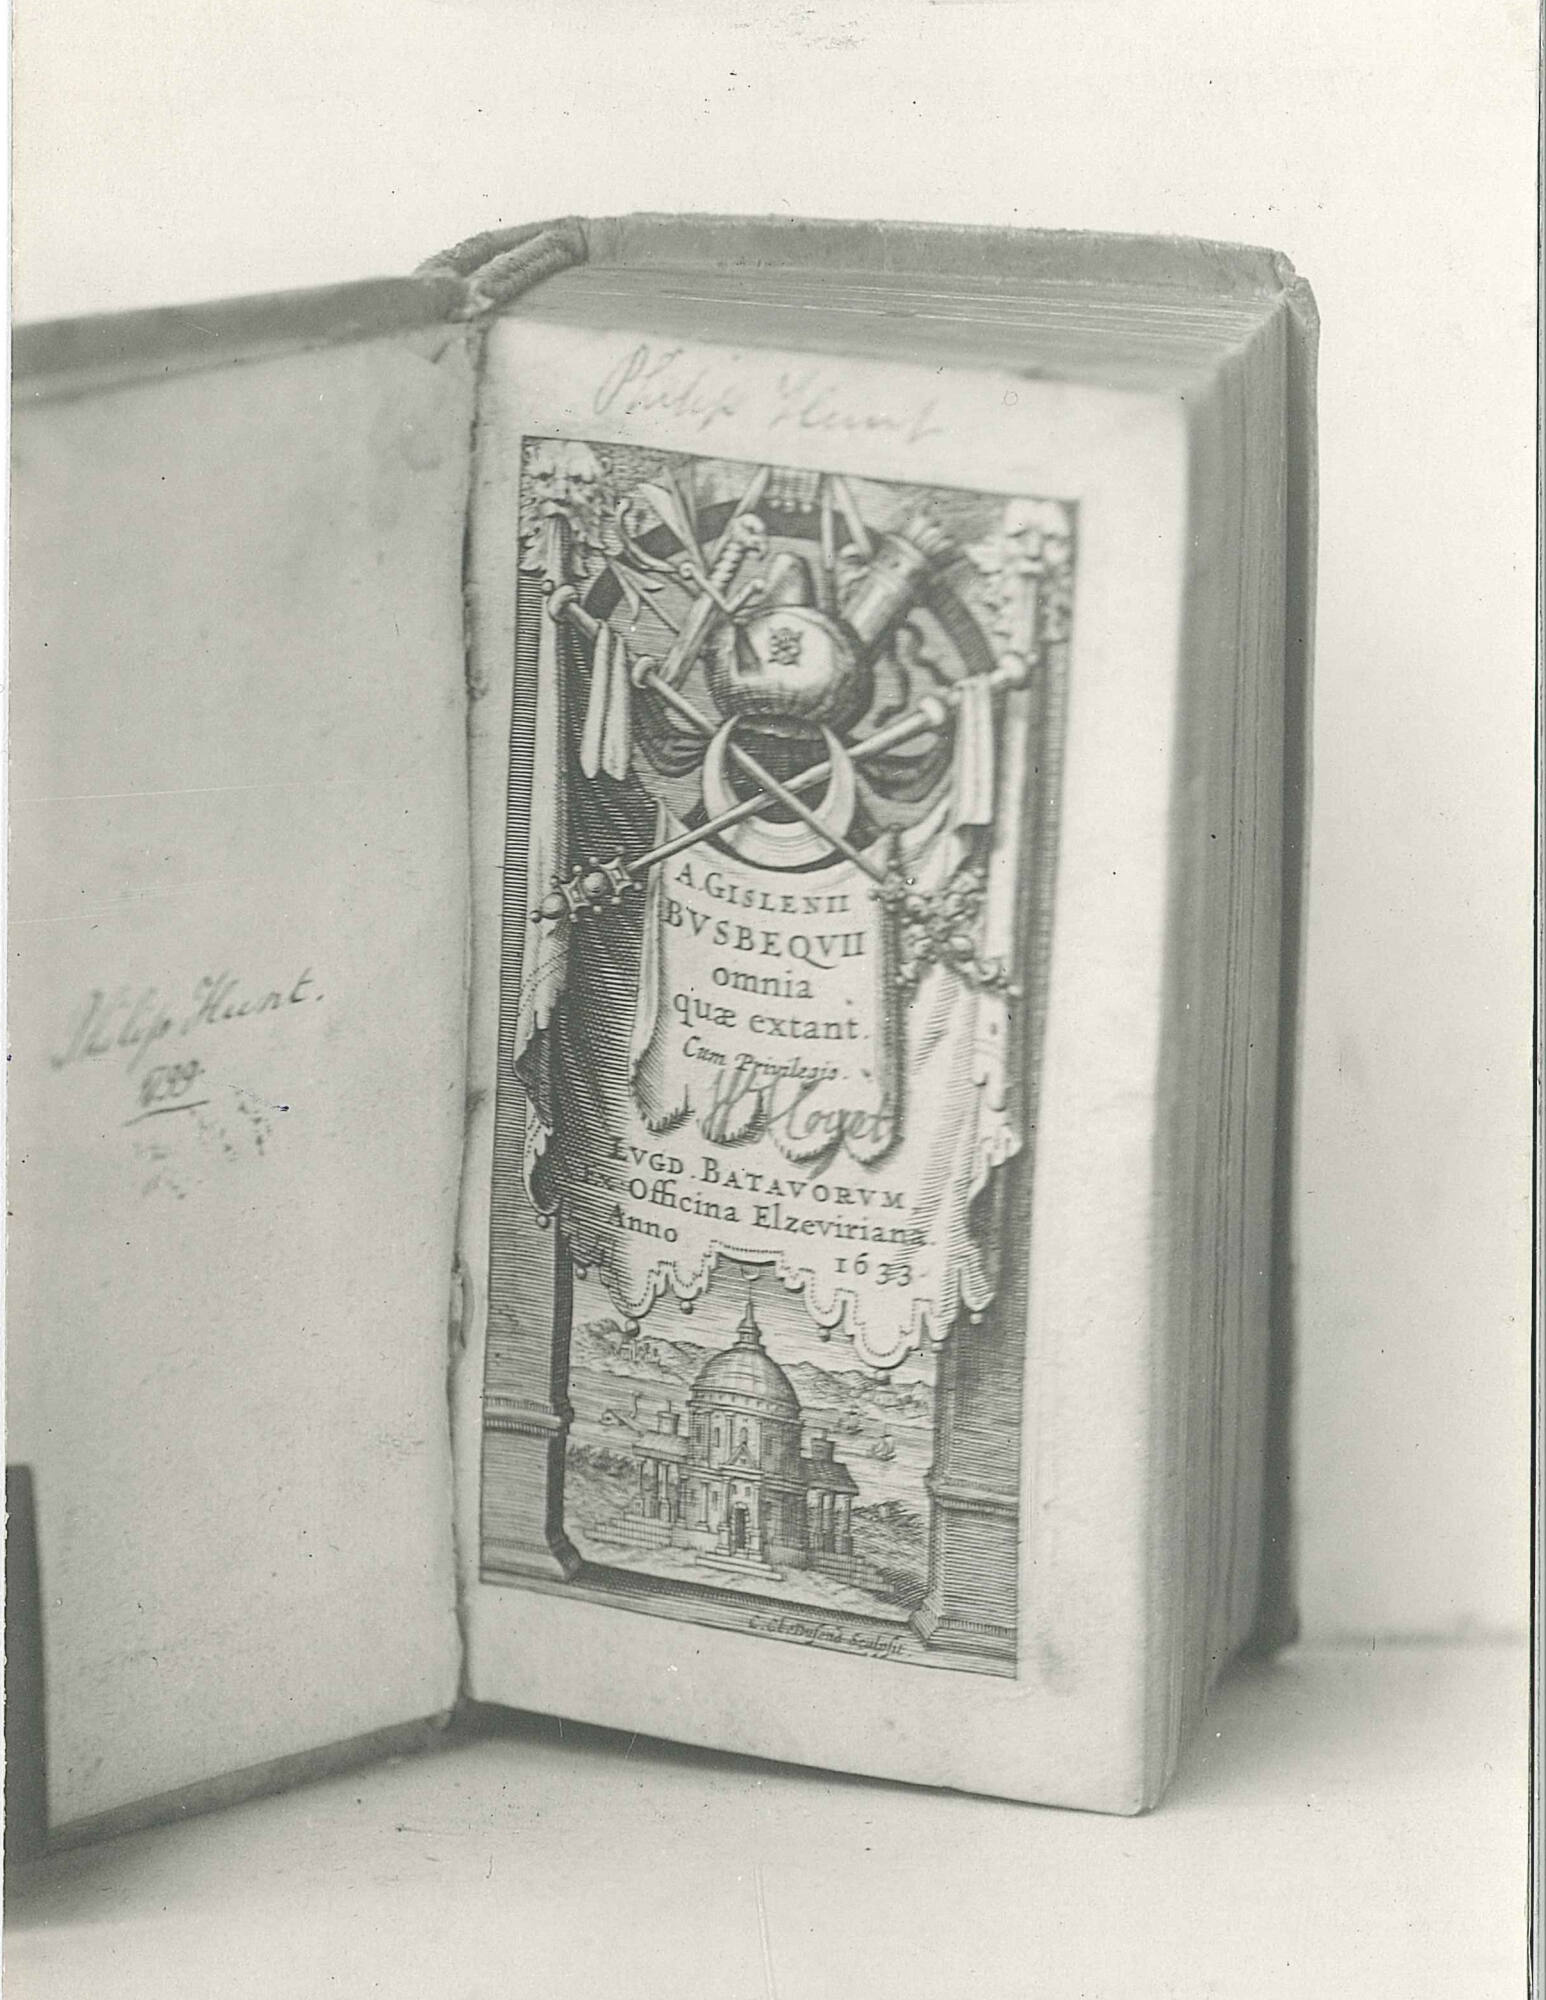 Philip Hunt.
1799
Philip Hunt
A. GISLENII
BVSBEQVII
omnia
quæ extant.
Cum Privilegio.
LVGD. BATAVORVM,
Ex Officina Elzeviriana.
Anno 1633.
Sculpsit